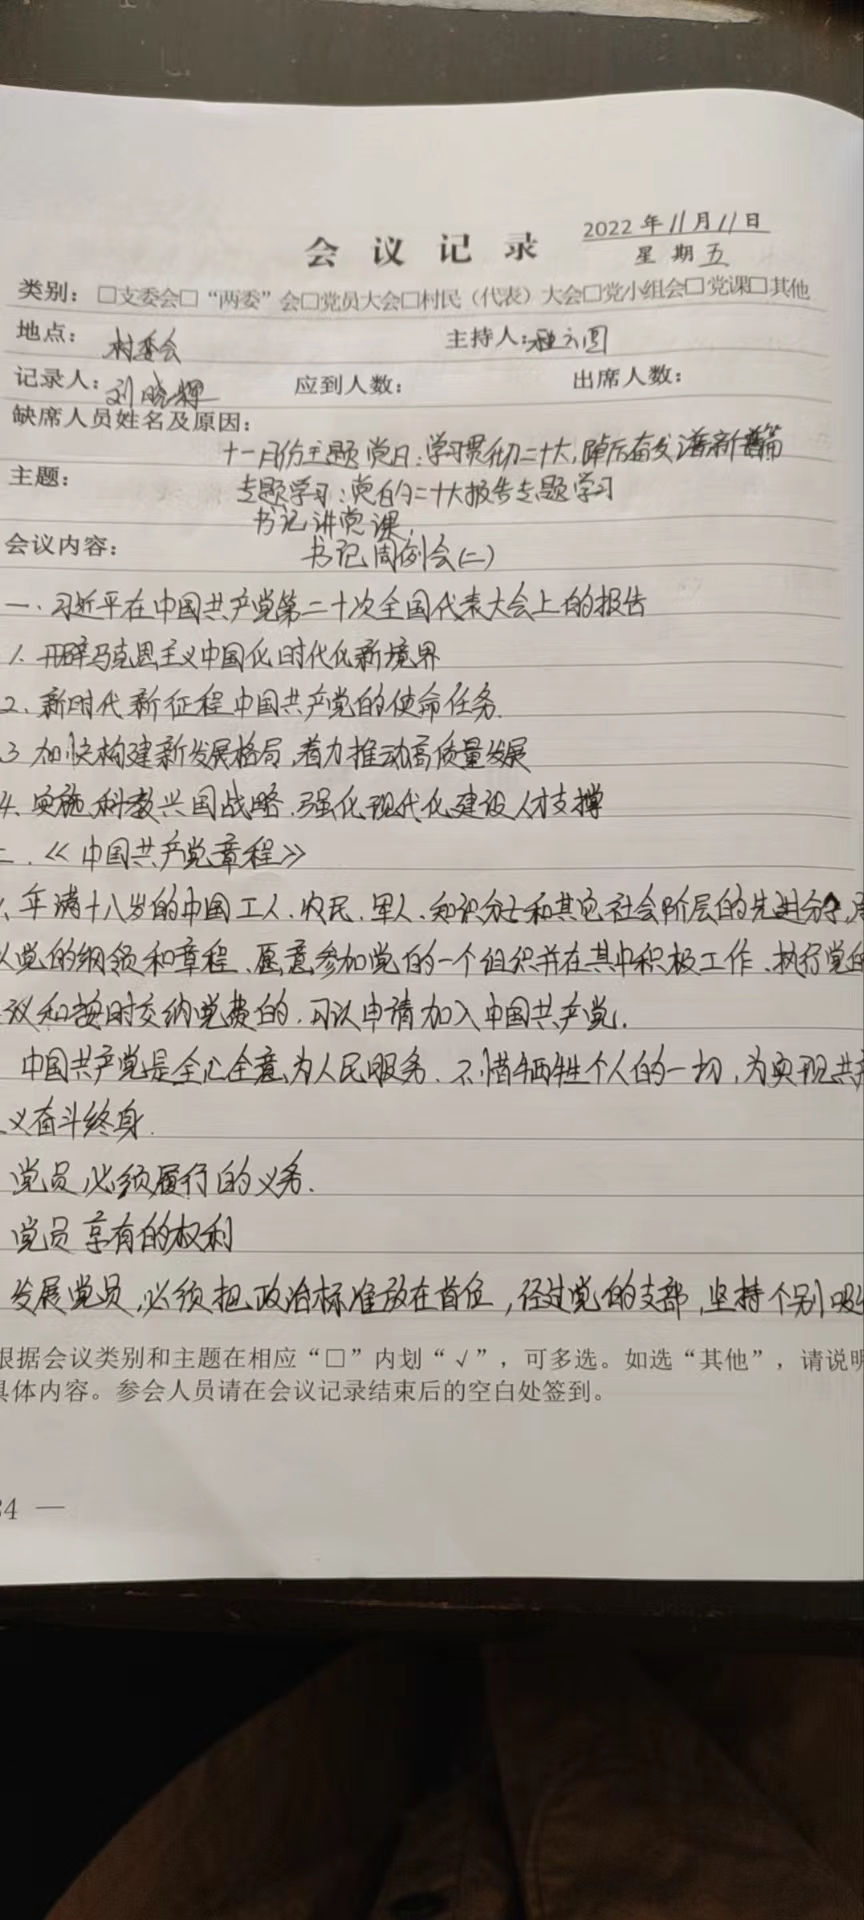 2022年11月11日
会议记录
星期五
类别：□支委会□“两委”会□党员大会□村民（代表）大会□党小组会□党课□其他
地点：村委会 主持人：
记录人：刘晓辉 应到人数： 出席人数：
缺席人员姓名及原因：
十一月份主题党日：学习贯彻二十大，踔厉奋发谱新篇
主题：
专题学习：党的二十大报告专题学习
书记讲党课，
会议内容： 书记周例会(二)
一、习近平在中国共产党第二十次全国代表大会上的报告
1、开辟马克思主义中国化时代化新境界
2、新时代新征程中国共产党的使命任务.
3 加快构建新发展格局，着力推动高质量发展
4、实施科教兴国战略，强化现代化建设人才支撑
二、《中国共产党章程》
、年满十八岁的中国工人、农民、军人、知识分子和其它社会阶层的先进分子，
认党的纲领和章程、愿意参加党的一个组织并在其中积极工作、执行党的
议和按时交纳党费的，可以申请加入中国共产党.
中国共产党是全心全意为人民服务、不惜牺牲个人的一切，为实现共产
义奋斗终身.
党员必须履行的义务.
党员享有的权利
发展党员，必须把政治标准放在首位，经过党的支部，坚持个别吸
根据会议类别和主题在相应“□”内划“√”，可多选。如选“其他”，请说明
具体内容。参会人员请在会议记录结束后的空白处签到。
34 —